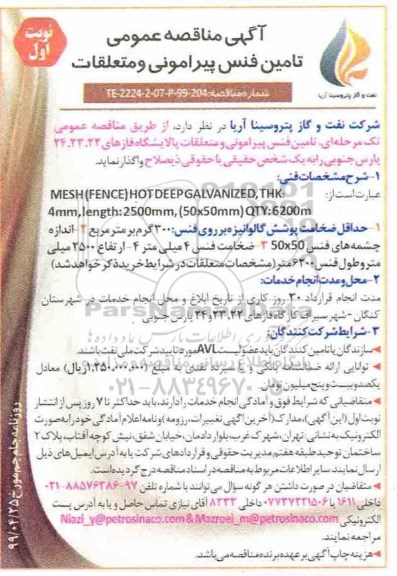 نوبت
اول
آگهی مناقصه عمومی
تامین فنس پیرامونی و متعلقات
نفت و گاز پتروسینا آریا
شماره مناقصه: TE-2224-2-07-P-99-204
شرکت نفت و گاز پتروسینا آریا در نظر دارد، از طریق مناقصه عمومی
تک مرحله‌ای، تامین فنس پیرامونی و متعلقات پالایشگاه فازهای ۲۴،۲۳،۲۲
پارس جنوبی را به یک شخص حقیقی یا حقوقی ذیصلاح واگذار نماید.
۱-شرح مشخصات فنی:
عبارت است از: MESH (FENCE) HOT DEEP GALVANIZED, THK
4mm, length: 2500mm, (50x50mm) QTY: 6200m
۱-حداقل ضخامت پوشش گالوانیزه بر روی فنس: ۳۰۰ گرم بر متر مربع ۲-اندازه
چشمه‌های فنس 50x50 ۳- ضخامت فنس ۴ میلی متر ۴- ارتفاع ۲۵۰۰ میلی
متر و طول فنس ۶۲۰۰ متر (مشخصات متعلقات در شرایط خرید ذکر خواهد شد)
۲-محل و مدت انجام خدمات:
مدت انجام قرارداد ۳۰ روز کاری از تاریخ ابلاغ و محل انجام خدمات در شهرستان
کنگان -شهر سیراف کارگاه فازهای ۲۴،۲۳،۲۲ پارس جنوبی
۳-شرایط شرکت کنندگان:
سازندگان یا تامین کنندگان باید عضو لیست AVL مورد تایید شرکت ملی نفت باشند.
توانایی ارائه ضمانتنامه بانکی و یا سپرده نقدی به مبلغ (۱،۲۵۰،۰۰۰،۰۰۰ ریال) معادل
یکصد و بیست و پنج میلیون تومان
متقاضیانی که شرایط فوق و آمادگی انجام خدمات را دارند، باید حداکثر تا ۷ روز پس از انتشار
نوبت اول (این آگهی)، مدارک (آخرین آگهی تغییرات، رزومه) و نامه اعلام آمادگی خود را به صورت
الکترونیک به نشانی تهران، شهرک غرب، بلوار دادمان، خیابان شفق، نبش کوچه آفتاب، پلاک ۲
ساختمان توحید طبقه هفتم مدیریت حقوقی و قراردادهای شرکت یا به آدرس ایمیل‌های ذیل
ارسال نمایند. سایر اطلاعات مربوط به مناقصه در اسناد مناقصه درج گردیده است.
متقاضیان در صورت داشتن هر گونه سؤال می‌توانند با شماره تلفن ۹۷-۸۸۵۷۶۲۸۶-۰۲۱
داخلی ۱۶۱۱ یا ۰۷۷۳۷۳۳۱۵۰۶ داخلی ۸۳۳۳ آقای نیازی تماس حاصل و یا به آدرس پست
الکترونیکی Niazi_y@petrosinaco.com & Mazroei_m@petrosinaco.com
مراجعه نمایند.
هزینه چاپ آگهی بر عهده برنده مناقصه می‌باشد.
روزنامه جام جم مورخ ۹۹/۰۴/۲۵
ParsNamadData
۰۲۱-۸۸۳۴۹۶۷۰